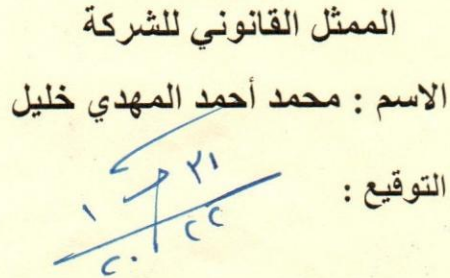 الممثل القانوني للشركة
الاسم : محمد أحمد المهدي خليل
التوقيع :
٢١
١
٢٠٢٢